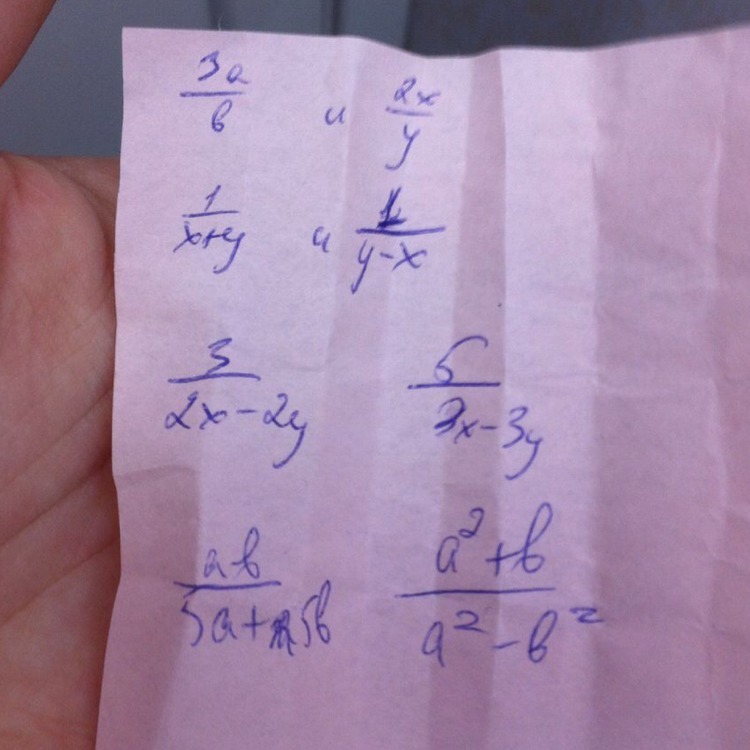 3a/в и 2x/y
1/x+y и 1/y-x
3/2x-2y 5/3x-3y
aв/5a+5в a²+в/a²-в²